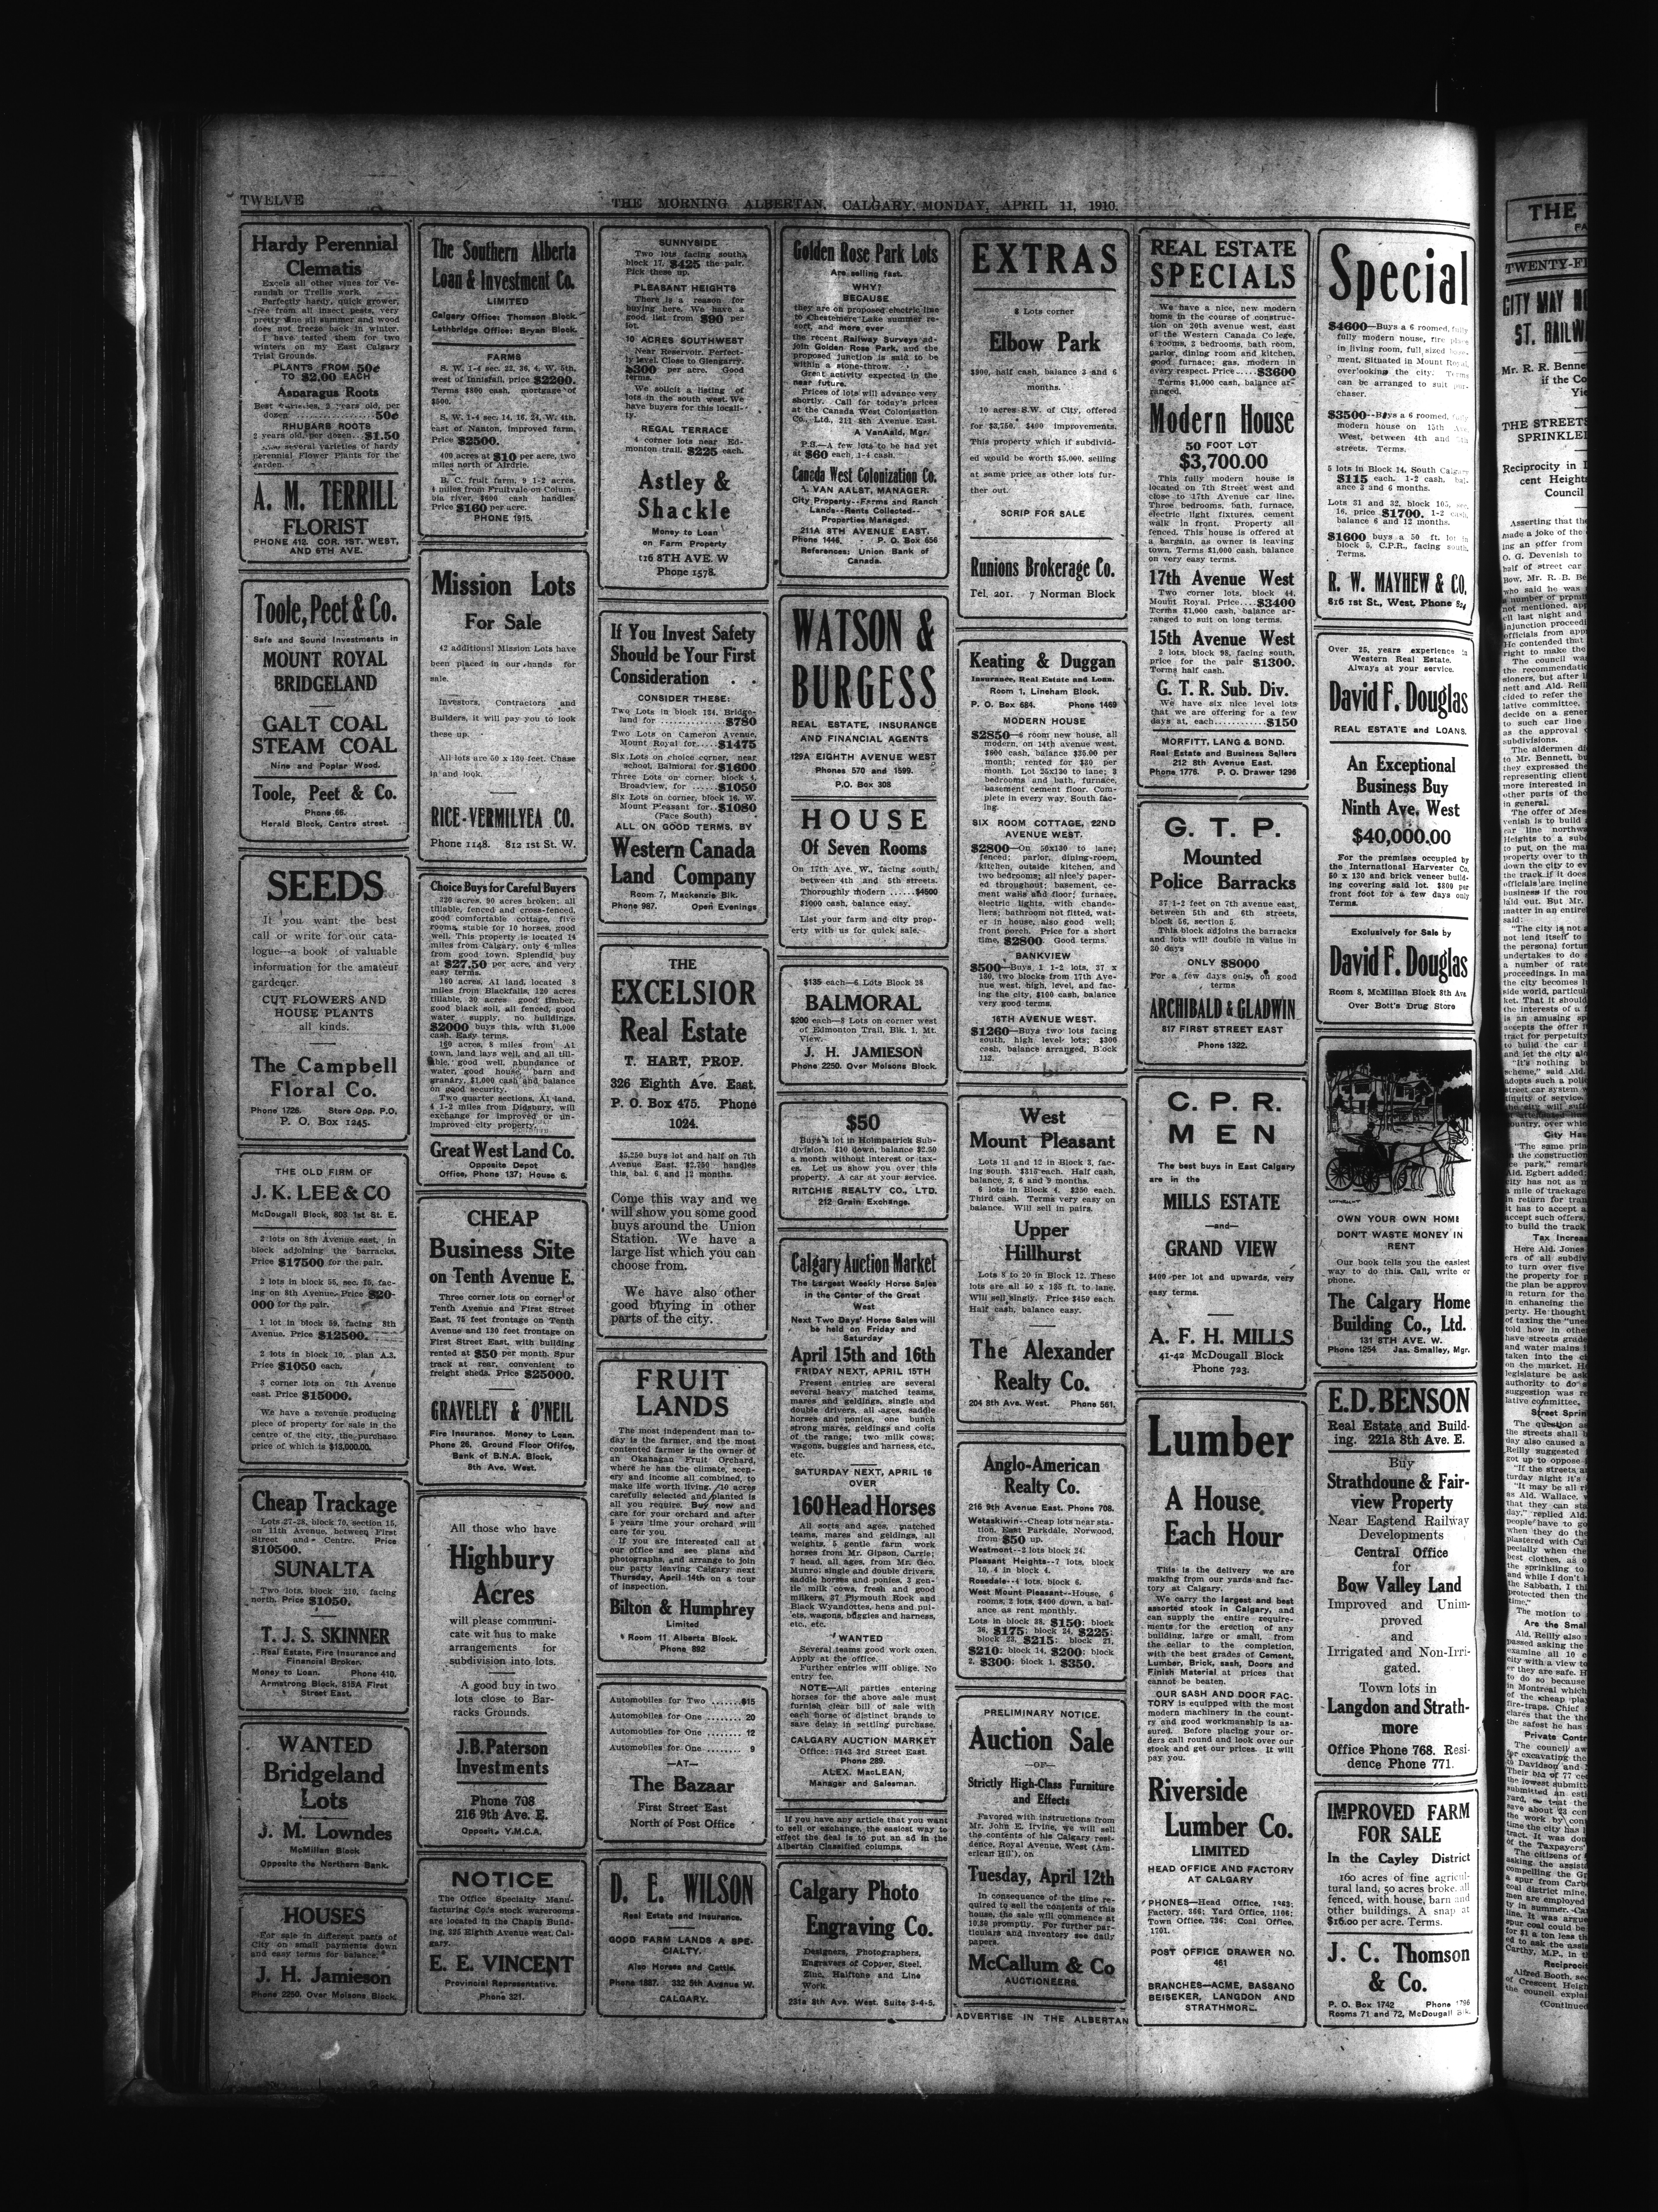 TWELVE
THE MORNING ALBERTAN, CALGARY, MONDAY, APRIL 11, 1910.
Hardy Perennial
Clematis
Excels all other vines for Ve-
randah or Trellis work.
Perfectly hardy, quick grower,
free from all insect pests, very
pretty vine all summer and wood
does not freeze back in winter.
I have tested them for two
winters on my East Calgary
Trial Grounds.
PLANTS FROM 50¢
TO $2.00 EACH
Asparagus Roots
Best varieties, 2 years old, per
dozen 50¢
RHUBARB ROOTS
2 years old, per dozen $1.50
several varieties of hardy
perennial Flower Plants for the
garden.
A. M. TERRILL
FLORIST
PHONE 412. COR. 1ST. WEST,
AND 6TH AVE.
Toole, Peet & Co.
Safe and Sound Investments in
MOUNT ROYAL
BRIDGELAND
GALT COAL
STEAM COAL
Nine and Poplar Wood.
Toole, Peet & Co.
Phone 66.
Herald Block, Centre street.
SEEDS
If you want the best
call or write for our cata-
logue—a book of valuable
information for the amateur
gardener.
CUT FLOWERS AND
HOUSE PLANTS
all kinds.
The Campbell
Floral Co.
Phone 1726. Store Opp. P.O.
P. O. Box 1245.
THE OLD FIRM OF
J. K. LEE & CO
McDougall Block, 803 1st St. E.
2 lots on 8th Avenue east, in
block adjoining the barracks.
Price $17500 for the pair.
2 lots in block 55, sec. 15, fac-
ing on 8th Avenue. Price $20-
000 for the pair.
1 lot in block 59, facing 8th
Avenue. Price $12500.
2 lots in block 10, plan A.3.
Price $1050 each.
3 corner lots on 7th Avenue
east. Price $15000.
We have a revenue producing
piece of property for sale in the
centre of the city, the purchase
price of which is $18,000.00.
Cheap Trackage
Lots 27-28, block 70, section 15,
on 11th Avenue, between First
Street and Centre. Price
$10500.
SUNALTA
Two lots, block 210, facing
north. Price $1050.
T. J. S. SKINNER
Real Estate, Fire Insurance and
Financial Broker.
Money to Loan. Phone 410.
Armstrong Block, 815A First
Street East.
WANTED
Bridgeland
Lots
J. M. Lowndes
McMillan Block
Opposite the Northern Bank.
HOUSES
For sale in different parts of
City on small payments down
and easy terms for balance.
J. H. Jamieson
Phone 2250. Over Molsons Block.
The Southern Alberta
Loan & Investment Co.
LIMITED
Calgary Office: Thomson Block.
Lethbridge Office: Bryan Block.
FARMS
S. W. 1-4 sec. 22, 36, 4, W. 5th,
west of Innisfail, price $2200.
Terms $800 cash, mortgage of
$500.
S. W. 1-4 sec. 14, 16, 24, W. 4th,
east of Nanton, improved farm,
Price $2500.
400 acres at $10 per acre, two
miles north of Airdrie.
B. C. fruit farm, 9 1-2 acres,
4 miles from Fruitvale on Colum-
bia river, $600 cash handles.
Price $160 per acre.
PHONE 1915.
Mission Lots
For Sale
42 additional Mission Lots have
been placed in our hands for
sale.
Investors, Contractors and
Builders, it will pay you to look
these up.
All lots are 50 x 130 feet. Chase
in and look.
RICE-VERMILYEA CO.
Phone 1148. 812 1st St. W.
Choice Buys for Careful Buyers
320 acres, 90 acres broken; all
tillable, fenced and cross-fenced,
good comfortable cottage, five
rooms, stable for 10 horses, good
well. This property is located 14
miles from Calgary, only 6 miles
from good town. Splendid buy
at $27.50 per acre, and very
easy terms.
160 acres, A1 land, located 8
miles from Blackfalds, 120 acres
tillable, 30 acres good timber,
good black soil, all fenced, good
water supply, no buildings.
$2000 buys this, with $1,000
cash. Easy terms.
160 acres, 8 miles from A1
town, land lays well, and all till-
able, good well, abundance of
water, good house, barn and
granary, $1,000 cash and balance
on good security.
Two quarter sections, A1 land,
4 1-2 miles from Didsbury, will
exchange for improved or un-
improved city property.
Great West Land Co.
Opposite Depot
Office, Phone 137; House 6.
CHEAP
Business Site
on Tenth Avenue E.
Three corner lots on corner of
Tenth Avenue and First Street
East, 75 feet frontage on Tenth
Avenue and 130 feet frontage on
First Street East, with building
rented at $50 per month. Spur
track at rear, convenient to
freight sheds. Price $25000.
GRAVELEY & O'NEIL
Fire Insurance. Money to Loan.
Phone 26. Ground Floor Office,
Bank of B.N.A. Block,
8th Ave. West.
All those who have
Highbury
Acres
will please communi-
cate wit hus to make
arrangements for
subdivision into lots.
A good buy in two
lots close to Bar-
racks Grounds.
J.B.Paterson
Investments
Phone 708
216 9th Ave. E.
Opposite Y.M.C.A.
NOTICE
The Office Specialty Manu-
facturing Co.'s stock warerooms
are located in the Chapin Build-
ing, 325 Eighth Avenue west, Cal-
gary.
E. E. VINCENT
Provincial Representative.
Phone 321.
SUNNYSIDE
Two lots facing south,
block 17, $425 the pair.
Pick these up.
PLEASANT HEIGHTS
There is a reason for
buying here. We have a
good list from $90 per
lot.
10 ACRES SOUTHWEST
Near Reservoir. Perfect-
ly level. Close to Glengarry.
$300 per acre. Good
terms.
We solicit a listing of
lots in the south west. We
have buyers for this locali-
ty.
REGAL TERRACE
4 corner lots near Ed-
monton trail, $225 each.
Astley &
Shackle
Money to Loan
on Farm Property
116 8TH AVE. W
Phone 1578.
If You Invest Safety
Should be Your First
Consideration . .
CONSIDER THESE:
Two Lots in block 134, Bridge-
land for $780
Two Lots on Cameron Avenue,
Mount Royal for $1475
Six Lots on choice corner, near
school, Balmoral for $1600
Three Lots on corner, block 4,
Broadview, for $1050
Six Lots on corner, block 16, W.
Mount Pleasant for $1080
(Face South)
ALL ON GOOD TERMS, BY
Western Canada
Land Company
Room 7, Mackenzie Blk.
Phone 987. Open Evenings
THE
EXCELSIOR
Real Estate
T. HART, PROP.
326 Eighth Ave. East.
P. O. Box 475. Phone
1024.
$5,250 buys lot and half on 7th
Avenue East. $2,750 handles
this, bal. 6 and 12 months.
Come this way and we
will show you some good
buys around the Union
Station. We have a
large list which you can
choose from.
We have also other
good buying in other
parts of the city.
FRUIT
LANDS
The most independent man to-
day is the farmer, and the most
contented farmer is the owner of
an Okanagan Fruit Orchard,
where he has the climate, scen-
ery and income all combined, to
make life worth living. 10 acres
carefully selected and planted is
all you require. Buy now and
care for your orchard and after
5 years time your orchard will
care for you.
If you are interested call at
our office and see plans and
photographs, and arrange to join
our party leaving Calgary next
Thursday, April 14th on a tour
of inspection.
Bilton & Humphrey
Limited
Room 11 Alberta Block.
Phone 892
Automobiles for Two $15
Automobiles for One 20
Automobiles for One 12
Automobiles for One 9
—AT—
The Bazaar
First Street East
North of Post Office
D. E. WILSON
Real Estate and Insurance.
GOOD FARM LANDS A SPE-
CIALTY.
Also Horses and Cattle.
Phone 1887. 332 5th Avenue W.
CALGARY.
Golden Rose Park Lots
Are selling fast.
WHY?
BECAUSE
they are on proposed electric line
to Chestermere Lake summer re-
sort, and more over
the recent Railway Surveys ad-
join Golden Rose Park, and the
proposed junction is said to be
within a stone-throw.
Great activity expected in the
near future.
Prices of lots will advance very
shortly. Call for today's prices
at the Canada West Colonization
Co., Ltd., 211 8th Avenue East.
A VanAald, Mgr.
P.S.—A few lots to be had yet
at $60 each, 1-4 cash.
Canada West Colonization Co.
A. VAN AALST, MANAGER.
City Property--Farms and Ranch
Lands--Rents Collected--
Properties Managed.
211A 8TH AVENUE EAST.
Phone 1446. P. O. Box 656
References: Union Bank of
Canada.
WATSON &
BURGESS
REAL ESTATE, INSURANCE
AND FINANCIAL AGENTS
129A EIGHTH AVENUE WEST
Phones 570 and 1599.
P.O. Box 308
HOUSE
Of Seven Rooms
On 17th Ave. W., facing south,
between 4th and 5th streets.
Thoroughly modern $4500
$1000 cash, balance easy.
List your farm and city prop-
erty with us for quick sale.
$135 each—6 Lots Block 28
BALMORAL
$200 each—8 Lots on corner west
of Edmonton Trail, Blk. 1, Mt.
View.
J. H. JAMIESON
Phone 2250. Over Molsons Block.
$50
Buys a lot in Holmpatrick Sub-
division. $10 down, balance $2.50
a month without interest or tax-
es. Let us show you over this
property. A car at your service.
RITCHIE REALTY CO., LTD.
212 Grain Exchange.
Calgary Auction Market
The Largest Weekly Horse Sales
in the Center of the Great
West
Next Two Days' Horse Sales will
be held on Friday and
Saturday
April 15th and 16th
FRIDAY NEXT, APRIL 15TH
Present entries are several
several heavy matched teams,
mares and geldings, single and
double drivers, all ages, saddle
horses and ponies, one bunch
strong mares, geldings and colts
of the range; two milk cows;
wagons, buggies and harness, etc.,
etc.
SATURDAY NEXT, APRIL 16
OVER
160 Head Horses
All sorts and ages, matched
teams, mares and geldings, all
weights, 5 gentle farm work
horses from Mr. Gipson, Carrie;
7 head, all ages, from Mr. Geo.
Munro; single and double drivers,
saddle horses and ponies, 3 gen-
tle milk cows, fresh and good
milkers, 37 Plymouth Rock and
Black Wyandottes, hens and pul-
ets, wagons, buggies and harness,
etc., etc.
WANTED
Several teams good work oxen.
Apply at the office.
Further entries will oblige. No
entry fee.
NOTE—All parties entering
horses for the above sale must
furnish clear bill of sale with
each horse of distinct brands to
save delay in settling purchase.
CALGARY AUCTION MARKET
Office: 7143 3rd Street East.
Phone 289.
ALEX. MacLEAN,
Manager and Salesman.
If you have any article that you want
to sell or exchange, the easiest way to
effect the deal is to put an ad in the
Albertan Classified columns.
Calgary Photo
Engraving Co.
Designers, Photographers,
Engravers of Copper, Steel,
Zinc, Halftone and Line
Work
231a 8th Ave. West. Suite 3-4-5.
EXTRAS
8 Lots corner
Elbow Park
$900, half cash, balance 3 and 6
months.
10 acres S.W. of City, offered
for $3,750. $400 improvements.
This property which if subdivid-
ed would be worth $5,000, selling
at same price as other lots fur-
ther out.
SCRIP FOR SALE
Runions Brokerage Co.
Tel. 201. 7 Norman Block
Keating & Duggan
Insurance, Real Estate and Loan.
Room 1, Lineham Block.
P. O. Box 684. Phone 1469
MODERN HOUSE
$2850—6 room new house, all
modern, on 14th avenue west,
$600 cash, balance $35.00 per
month; rented for $30 per
month. Lot 25x130 to lane; 3
bedrooms and bath, furnace,
basement cement floor. Com-
plete in every way. South fac-
ing.
SIX ROOM COTTAGE, 22ND
AVENUE WEST.
$2800—On 50x130 to lane;
fenced; parlor, dining-room,
kitchen, outside kitchen, and
two bedrooms; all nicely paper-
ed throughout; basement, ce-
ment walls and floor; furnace,
electric lights, with chande-
liers; bathroom not fitted, wat-
er in house, also good well;
front porch. Price for a short
time, $2800. Good terms.
BANKVIEW
$500—Buys 1 1-2 lots, 37 x
130, two blocks from 17th Ave-
nue west, high, level, and fac-
ing the city, $100 cash, balance
very good terms.
16TH AVENUE WEST.
$1260—Buys two lots facing
south, high level lots; $300
cash, balance arranged, Block
112.
West
Mount Pleasant
Lots 11 and 12 in Block 3, fac-
ing south. $315 each. Half cash,
balance, 3, 6 and 9 months.
6 lots in Block 4, $250 each.
Third cash. Terms very easy on
balance. Will sell in pairs.
Upper
Hillhurst
Lots 8 to 20 in Block 12. These
lots are all 50 x 135 ft. to lane.
Will sell singly. Price $450 each.
Half cash, balance easy.
The Alexander
Realty Co.
204 8th Ave. West. Phone 561.
Anglo-American
Realty Co.
216 9th Avenue East. Phone 708.
Wetaskiwin--Cheap lots near sta-
tion, East Parkdale, Norwood,
from $50 up.
Westmont--3 lots block 24.
Pleasant Heights--7 lots, block
10, 4 in block 4.
Rosedale--4 lots, block 6.
West Mount Pleasant--House, 6
rooms, 2 lots, $400 down, a bal-
ance as rent monthly.
Lots in block 38, $150; block
36, $175; block 24, $225;
block 23, $215; block 21,
$210; block 14, $200; block
2, $300; block 1, $350.
PRELIMINARY NOTICE.
Auction Sale
—OF—
Strictly High-Class Furniture
and Effects
Favored with instructions from
Mr. John E. Irvine, we will sell
the contents of his Calgary resi-
dence, Royal Avenue, West (Am-
erican Hil'), on
Tuesday, April 12th
In consequence of the time re-
quired to sell the contents of this
house, the sale will commence at
10.30 promptly. For further par-
ticulars and inventory see daily
papers.
McCallum & Co
AUCTIONEERS.
ADVERTISE IN THE ALBERTAN
REAL ESTATE
SPECIALS
We have a nice, new modern
home in the course of construc-
tion on 20th avenue west, east
of the Western Canada College,
6 rooms, 3 bedrooms, bath room,
parlor, dining room and kitchen,
good furnace; gas, modern in
every respect. Price $3600
Terms $1,000 cash, balance ar-
ranged.
Modern House
50 FOOT LOT
$3,700.00
This fully modern house is
located on 7th Street west and
close to 17th Avenue car line.
Three bedrooms, bath, furnace,
electric light fixtures, cement
walk in front. Property all
fenced. This house is offered at
a bargain, as owner is leaving
town. Terms $1,000 cash, balance
on very easy terms.
17th Avenue West
Two corner lots, block 44,
Mount Royal. Price $3400
Terms $1,000 cash, balance ar-
ranged to suit on long terms.
15th Avenue West
2 lots, block 98, facing south,
price for the pair $1300.
Terms half cash.
G. T. R. Sub. Div.
We have six nice level lots
that we are offering for a few
days at, each $150
MORFITT, LANG & BOND.
Real Estate and Business Sellers
212 8th Avenue East.
Phone 1776. P. O. Drawer 1296
G. T. P.
Mounted
Police Barracks
37 1-2 feet on 7th avenue east,
between 5th and 6th streets,
block 56, section 5.
This block adjoins the barracks
and lots will double in value in
30 days
ONLY $8000
For a few days only, on good
terms
ARCHIBALD & GLADWIN
817 FIRST STREET EAST
Phone 1322.
C. P. R.
MEN
The best buys in East Calgary
are in the
MILLS ESTATE
—and—
GRAND VIEW
$400 per lot and upwards, very
easy terms.
A. F. H. MILLS
41-42 McDougall Block
Phone 723.
Lumber
A House
Each Hour
This is the delivery we are
making from our yards and fac-
tory at Calgary.
We carry the largest and best
assorted stock in Calgary, and
can supply the entire require-
ments for the erection of any
building, large or small, from
the cellar to the completion,
with the best grades of Cement,
Lumber, Brick, sash, Doors and
Finish Material at prices that
cannot be beaten.
OUR SASH AND DOOR FAC-
TORY is equipped with the most
modern machinery in the count-
ry and good workmanship is as-
sured. Before placing your or-
ders call round and look over our
stock and get our prices. It will
pay you.
Riverside
Lumber Co.
LIMITED
HEAD OFFICE AND FACTORY
AT CALGARY
PHONES—Head Office, 1963;
Factory, 366; Yard Office, 1106;
Town Office, 736; Coal Office,
1761.
POST OFFICE DRAWER NO.
461
BRANCHES—ACME, BASSANO
BEISEKER, LANGDON AND
STRATHMORE.
Special
$4600—Buys a 6 roomed, fully
fully modern house, fire place
in living room, full sized base-
ment. Situated in Mount Royal,
overlooking the city. Terms
can be arranged to suit pur-
chaser.
$3500--Buys a 6 roomed, fully
modern house on 15th Ave.
West, between 4th and 5th
streets. Terms.
5 lots in Block 14, South Calgary
$115 each. 1-2 cash, bal-
ance 3 and 6 months.
Lots 31 and 32, block 105, sec.
16, price $1700. 1-2 cash,
balance 6 and 12 months.
$1600 buys a 50 ft. lot in
block 5, C.P.R., facing south.
Terms.
R. W. MAYHEW & CO.
816 1st St., West. Phone 524
Over 25, years experience in
Western Real Estate.
Always at your service.
David F. Douglas
REAL ESTATE and LOANS.
An Exceptional
Business Buy
Ninth Ave. West
$40,000.00
For the premises occupied by
the International Harvester Co.
50 x 130 and brick veneer build-
ing covering said lot. $800 per
front foot for a few days only
Terms.
Exclusively for Sale by
David F. Douglas
Room 8, McMillan Block 8th Ave
Over Bott's Drug Store
OWN YOUR OWN HOME
DON'T WASTE MONEY IN
RENT
Our book tells you the easiest
way to do this. Call, write or
phone.
The Calgary Home
Building Co., Ltd.
131 8TH AVE. W.
Phone 1254 Jas. Smalley, Mgr.
E.D. BENSON
Real Estate and Build-
ing. 221a 8th Ave. E.
Buy
Strathdoune & Fair-
view Property
Near Eastend Railway
Developments
Central Office
for
Bow Valley Land
Improved and Unim-
proved
and
Irrigated and Non-Irri-
gated.
Town lots in
Langdon and Strath-
more
Office Phone 768. Resi-
dence Phone 771.
IMPROVED FARM
FOR SALE
In the Cayley District
160 acres of fine agricul-
tural land, 50 acres broke, all
fenced, with house, barn and
other buildings. A snap at
$16.00 per acre. Terms.
J. C. Thomson
& Co.
P. O. Box 1742 Phone 1796
Rooms 71 and 72, McDougall Blk.
THE
TWENTY-FI
CITY MAY
ST. RAILW
Mr. R. R. Benne
if the Co
THE STREETS
SPRINKLE
Reciprocity in
cent Height
Council